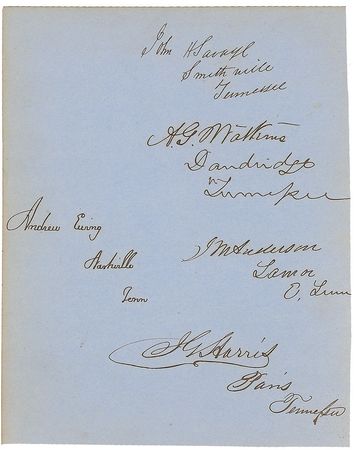 John H Savage
Smithville
Tennessee
A. G. Watkins
Dandridge
Tennessee
Andrew Ewing
Nashville
Tenn
Anderson
I G Harris
Paris
Tennessee